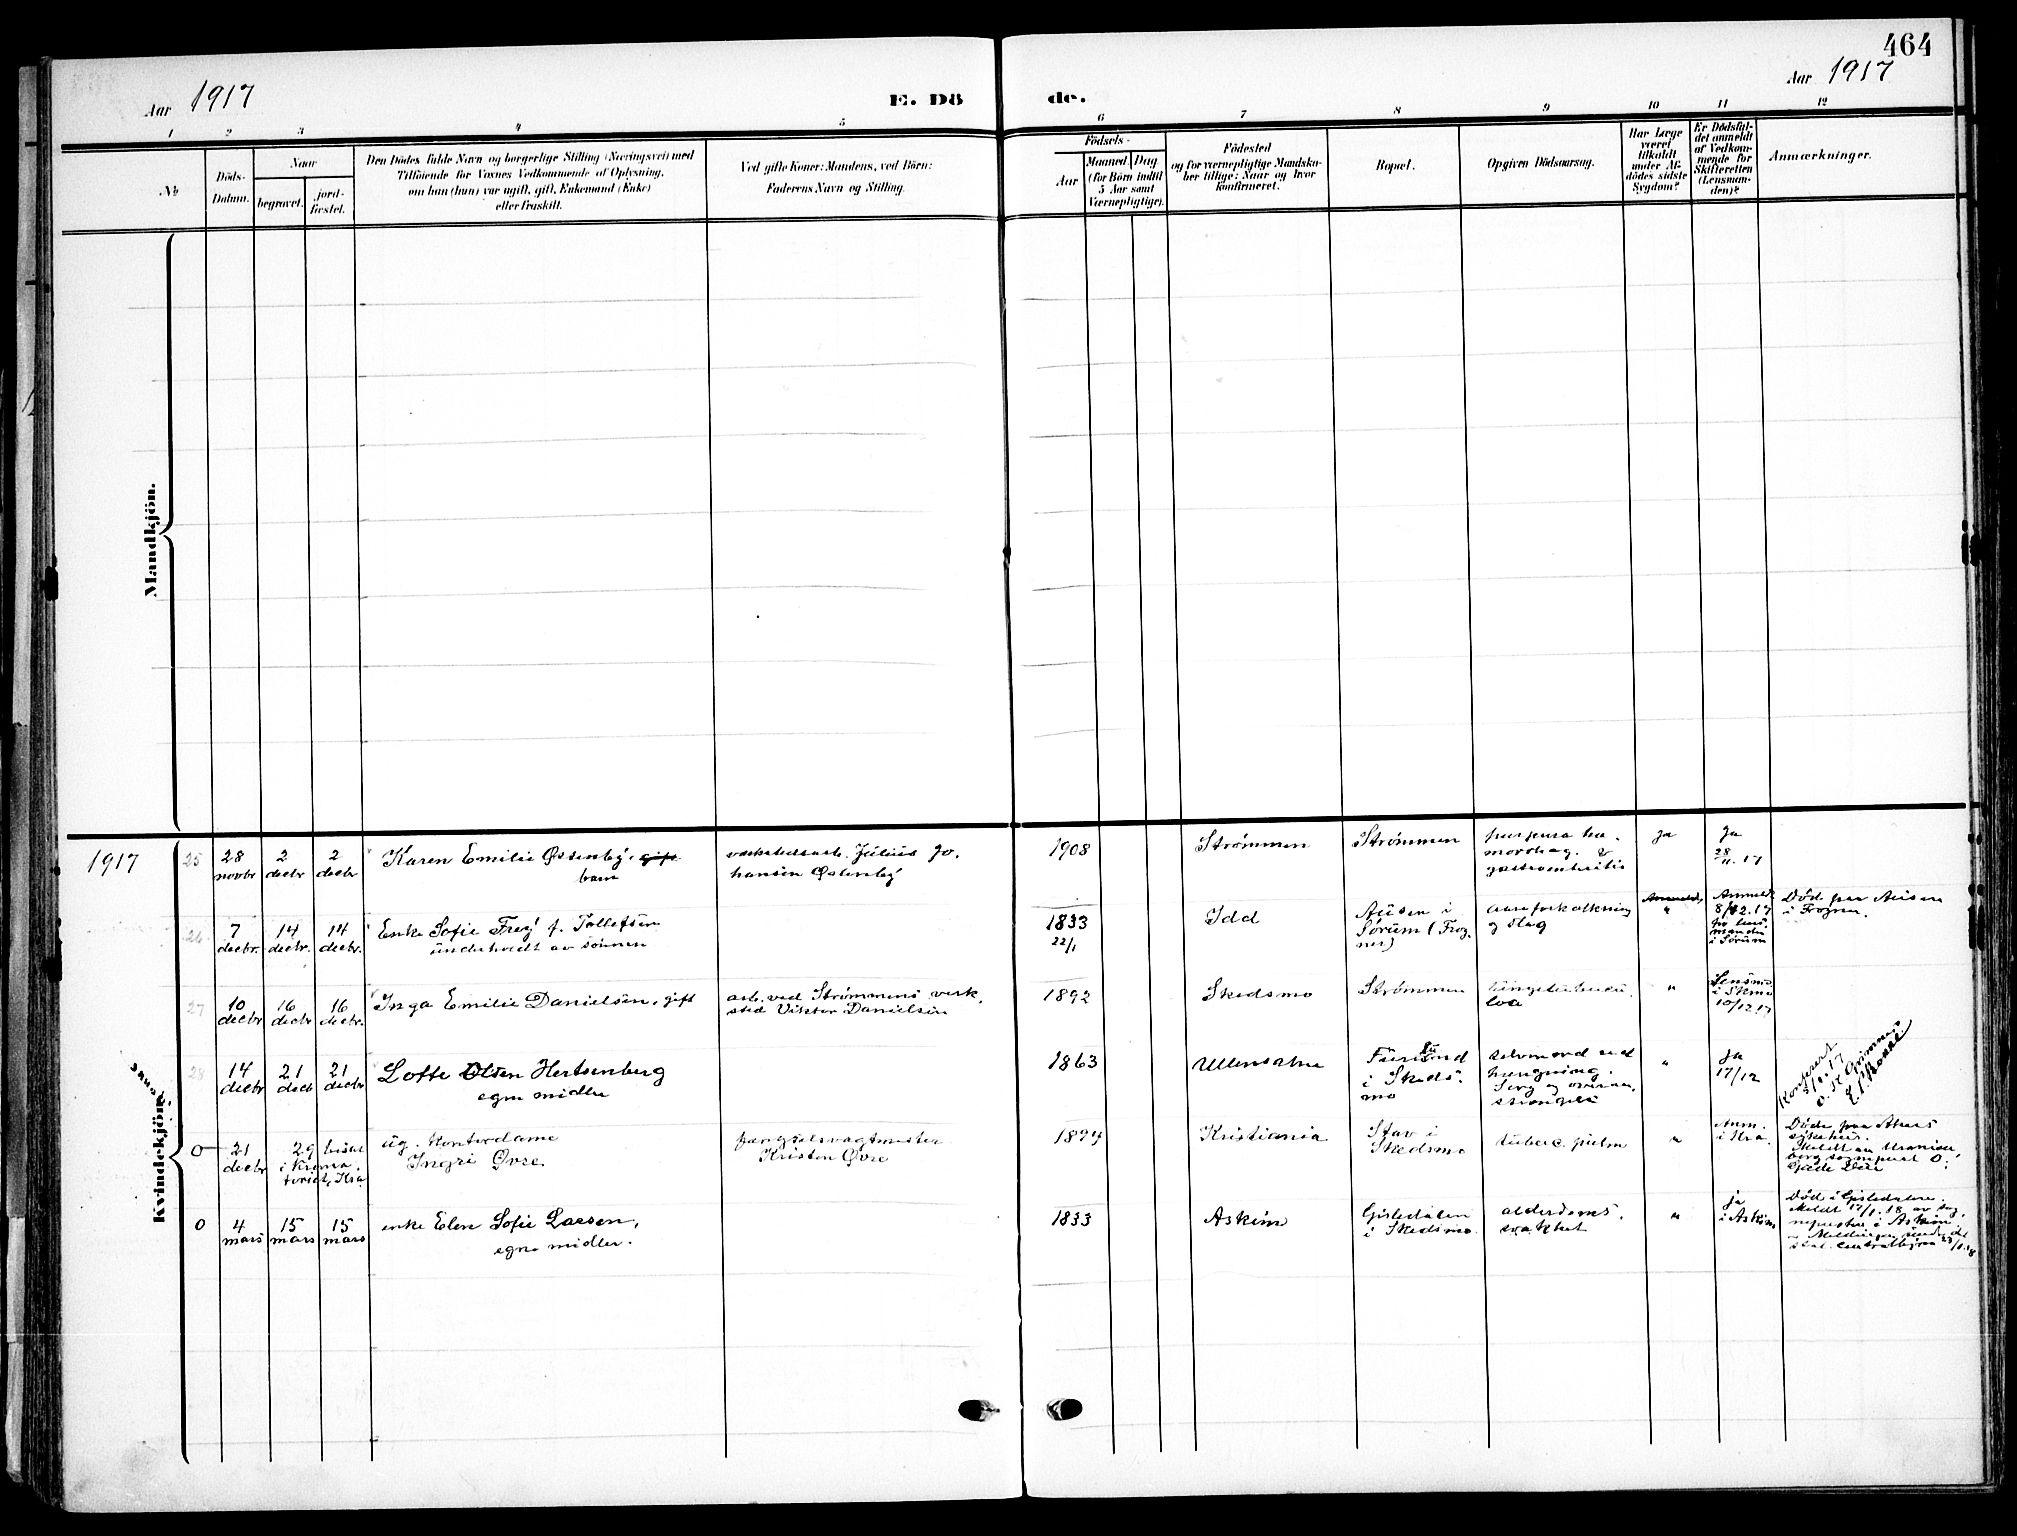 464
Aar 1917
E. Dö
de.
Aar 1917
1 2 3 4 5 6 7 8 9 10 11 12
No
Döds-
Datum.
Naar
begravet.
jord-
fæstet.
Den Dödes fulde Navn og borgerlige Stilling (Næringsvei) med
Tilföiende for Voxnes Vedkommende af Oplysning,
om han (hun) var ugift, gift, Enkemand (Enke)
eller fraskilt.
Ved gifte Koner: Mandens, ved Börn:
Faderens Navn og Stilling.
Födsels-
Aar
Maaned Dag
(for Börn indtil
5 Aar samt
Værnepligtige).
Födested
og for værnepligtige Mandskа-
ber tillige: Naar og hvor
konfirmeret.
Bopæl.
Opgiven Dödsaarsag.
Har Læge
været
tilkaldt
under Af-
dödes sidste
Sygdom?
Er Dödsfal-
det anmeldt
af Vedkom-
mende for
Skifteretten
(Lensman-
den)?
Anmærkninger.
Mandkjön.
Kvindekjön.
1917
25 28 novbr 2 decbr 2 decbr
Karen Emilie Østenby, gift
barn
verkstedsarb. Julius Jo-
hansen Østenby
1908 Strømmen Strømmen
purpura hæ-
morrhag. &
gastroenteritis
Ja
Ja
28/11.17
26 7 decbr. 14 decbr. 14 decbr.
Enke Sofie Frey f. Tollefsen
underholdt av sønnen
1833
22/1
Idd
Ausen i
Sørum (Frog-
ner)
aareforkalkning
og slag
Anmeldt
8/12.17
for lens-
manden
i Sørum
Død paa Ausen
i Frogner.
27 10 decbr 16 decbr 16 decbr.
Inga Emilie Danielsen, gift
arb. ved Strømmens verk-
sted Viktor Danielsen
1892 Skedsmo Strømmen
lungetuberku-
lose
"
Lensmd
i Skmo
10/12 17
28 14 decbr 21 decb 21 decbr
Lotte Olsen Hertsenberg
egne midler
1863 Ullensaker
Furulund
i Skeds-
mo
selvmord ved
hængning.
Sorg og overan-
strengelse
"
Ja
17/12
0 21 decbr
29
i Krema-
toriet, Kra
ug. Kontordame
Ingri Øvre
fængselsvagtmester
Kristen Øvre
1894 Kristiania
Stav i
Skedsmo
tuberc. pulm
"
Anm.
i Kra.
Døde paa Akers
sykehus.
0 4 mars 15 mars 15 mars
enke Elen Sofie Larsen,
egne midler.
1833 Askim
Gisledalen
i Skedsmo
alderdoms-
svakhet
"
ja
i Askim
Død i Gisledalen.
Meldt 17/1.18 av sog-
nepresten i Askim